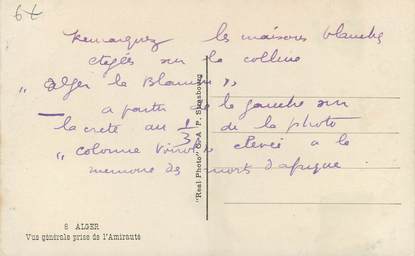 6
Remarquez les maisons blanches
etagés sur la colline
"alger la Blanche"
a partir de la gauche sur
la crete au 1/3 de la photo
"colonne Voirol" elevée a la
memoire des morts d'afrique.
"Real Photo" C. A. P. Strasbourg
8 ALGER
Vue générale prise de l'Amirauté